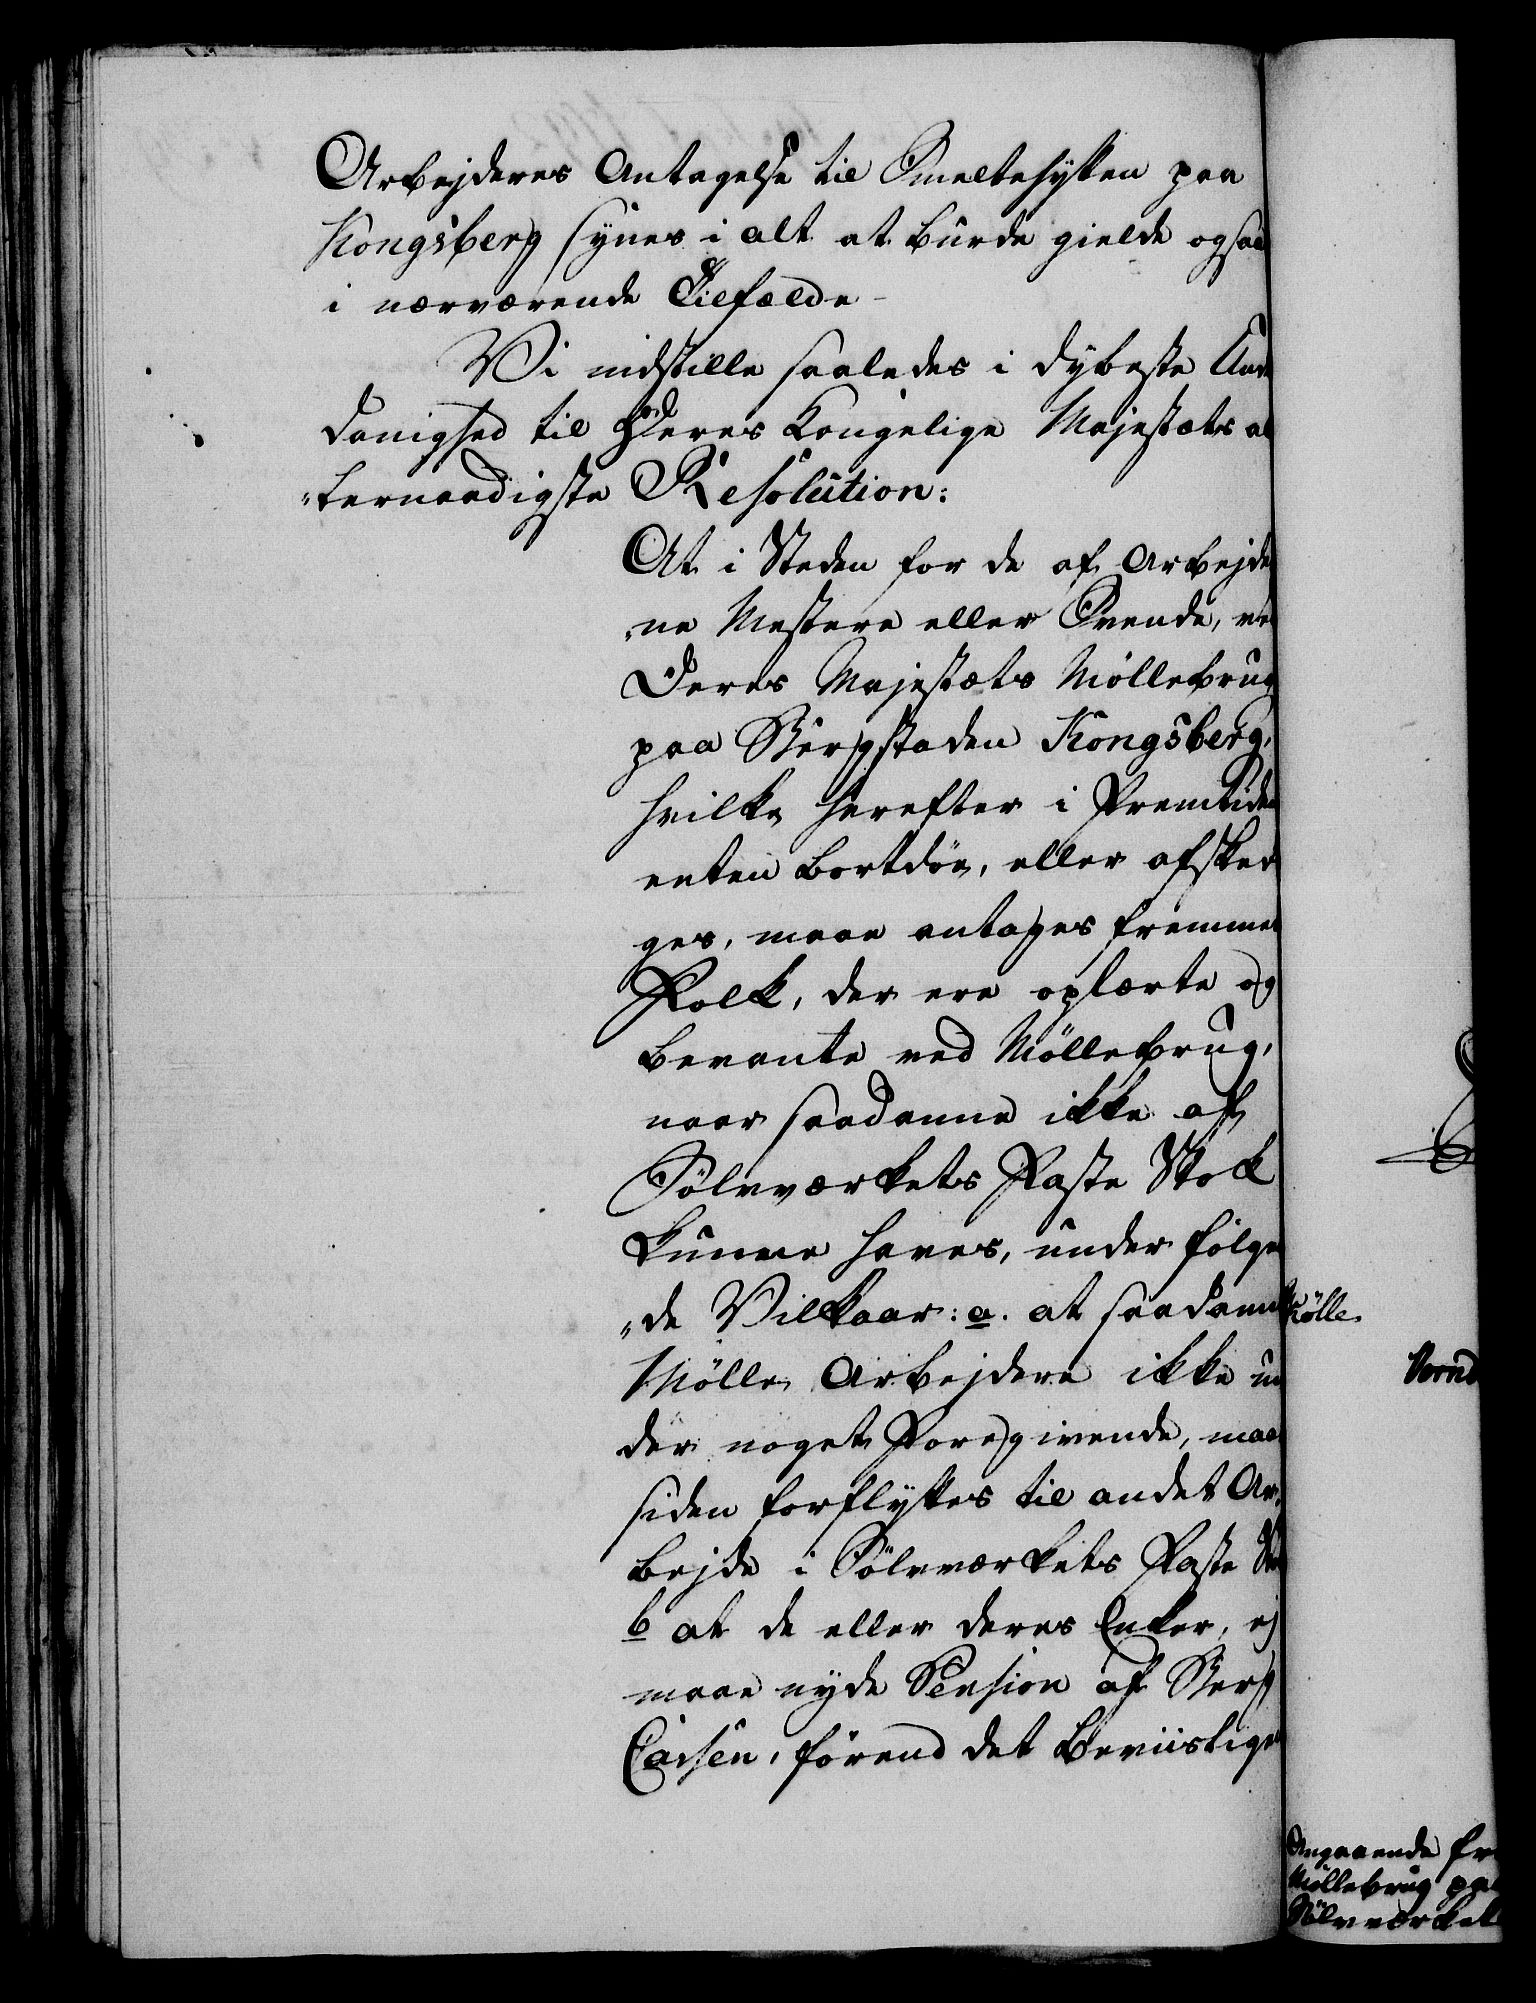 Arbejderes Antagelse til Smeltehytten paa
Kongsberg synes i alt at burde gielde ogsaa
i nærværende Tilfælde-
Vi indstille saaledes i dybeste Und
danighed til Deres Kongelige Majestæts al
"lernaadigste Resolution:
At i Steden for de af Arbejder
"ne Mestere eller Svende, ved
Deres Majestæts Møllebrug
paa Bergstaden Kongsberg,
hvilke herefter i Fremtiden
enten bortdöe, eller afskedi
ges, maae antages fremmet
Folk, der ere oplærte og
bevante ved Möllebrug,
naar saadanne ikke af
Sölvværkets Faste Stok
kunne haves, under fölgen
"de Vilkaar: a. at saadanne
Mölle Arbejdere ikke un
der noget Foregivende, maae
siden forflyttes til andet Ar,
bejde i Sölvværkets Faste Sto
b at de eller deres Enker, ej
maae nyde Pension af Berg
Cassen, förend det beviisliger
Mölle
Angaaende fre
Møllebrug paa
Sölvværket